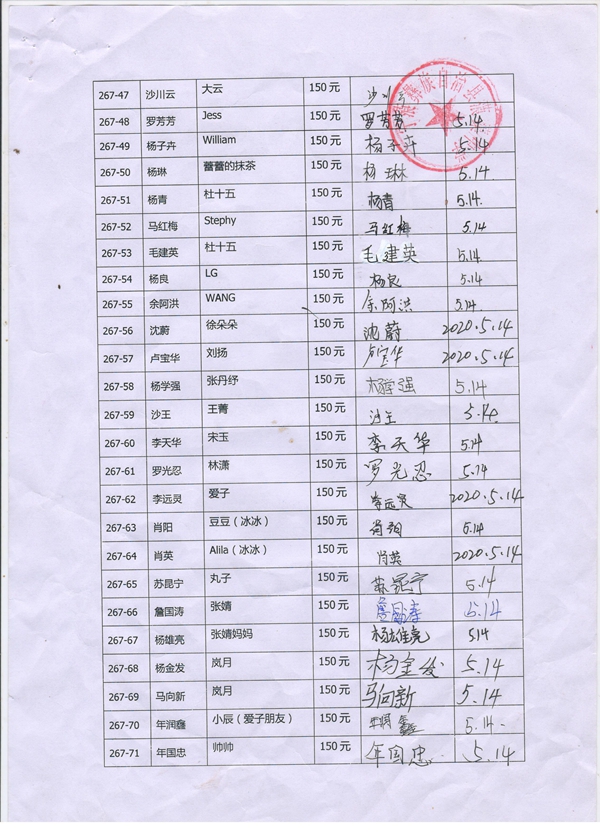 267-47 沙川云 大云 150元 沙川云
267-48 罗芳芳 Jess 150元 罗芳芳 5.14
267-49 杨子卉 William 150元 杨子卉 5.14
267-50 杨琳 蕾蕾的抹茶 150元 杨琳 5.14
267-51 杨青 杜十五 150元 杨青 5.14.
267-52 马红梅 Stephy 150元 马红梅 5.14
267-53 毛建英 杜十五 150元 毛建英 5.14
267-54 杨良 LG 150元 杨良 5.14
267-55 余阿洪 WANG 150元 余阿洪 5.14
267-56 沈蔚 徐朵朵 150元 沈蔚 2020.5.14
267-57 卢宝华 刘扬 150元 卢宝华 2020.5.14
267-58 杨学强 张丹纾 150元 杨学强 5.14
267-59 沙王 王菁 150元 沙王 5.14.
267-60 李天华 宋玉 150元 李天华 5.14
267-61 罗光忍 林潇 150元 罗光忍 5.14
267-62 李远灵 爱子 150元 李远灵 2020.5.14
267-63 肖阳 豆豆（冰冰） 150元 肖阳 5.14
267-64 肖英 Alila（冰冰） 150元 肖英 2020.5.14
267-65 苏昆宁 丸子 150元 苏昆宁 5.14
267-66 詹国涛 张婧 150元 詹国涛 5.14
267-67 杨雄亮 张婧妈妈 150元 杨雄亮 5.14
267-68 杨金发 岚月 150元 杨金发 5.14
267-69 马向新 岚月 150元 马向新 5.14
267-70 年润鑫 小辰（爱子朋友） 150元 年润鑫 5.14.
267-71 年国忠 帅帅 150元 年国忠 5.14